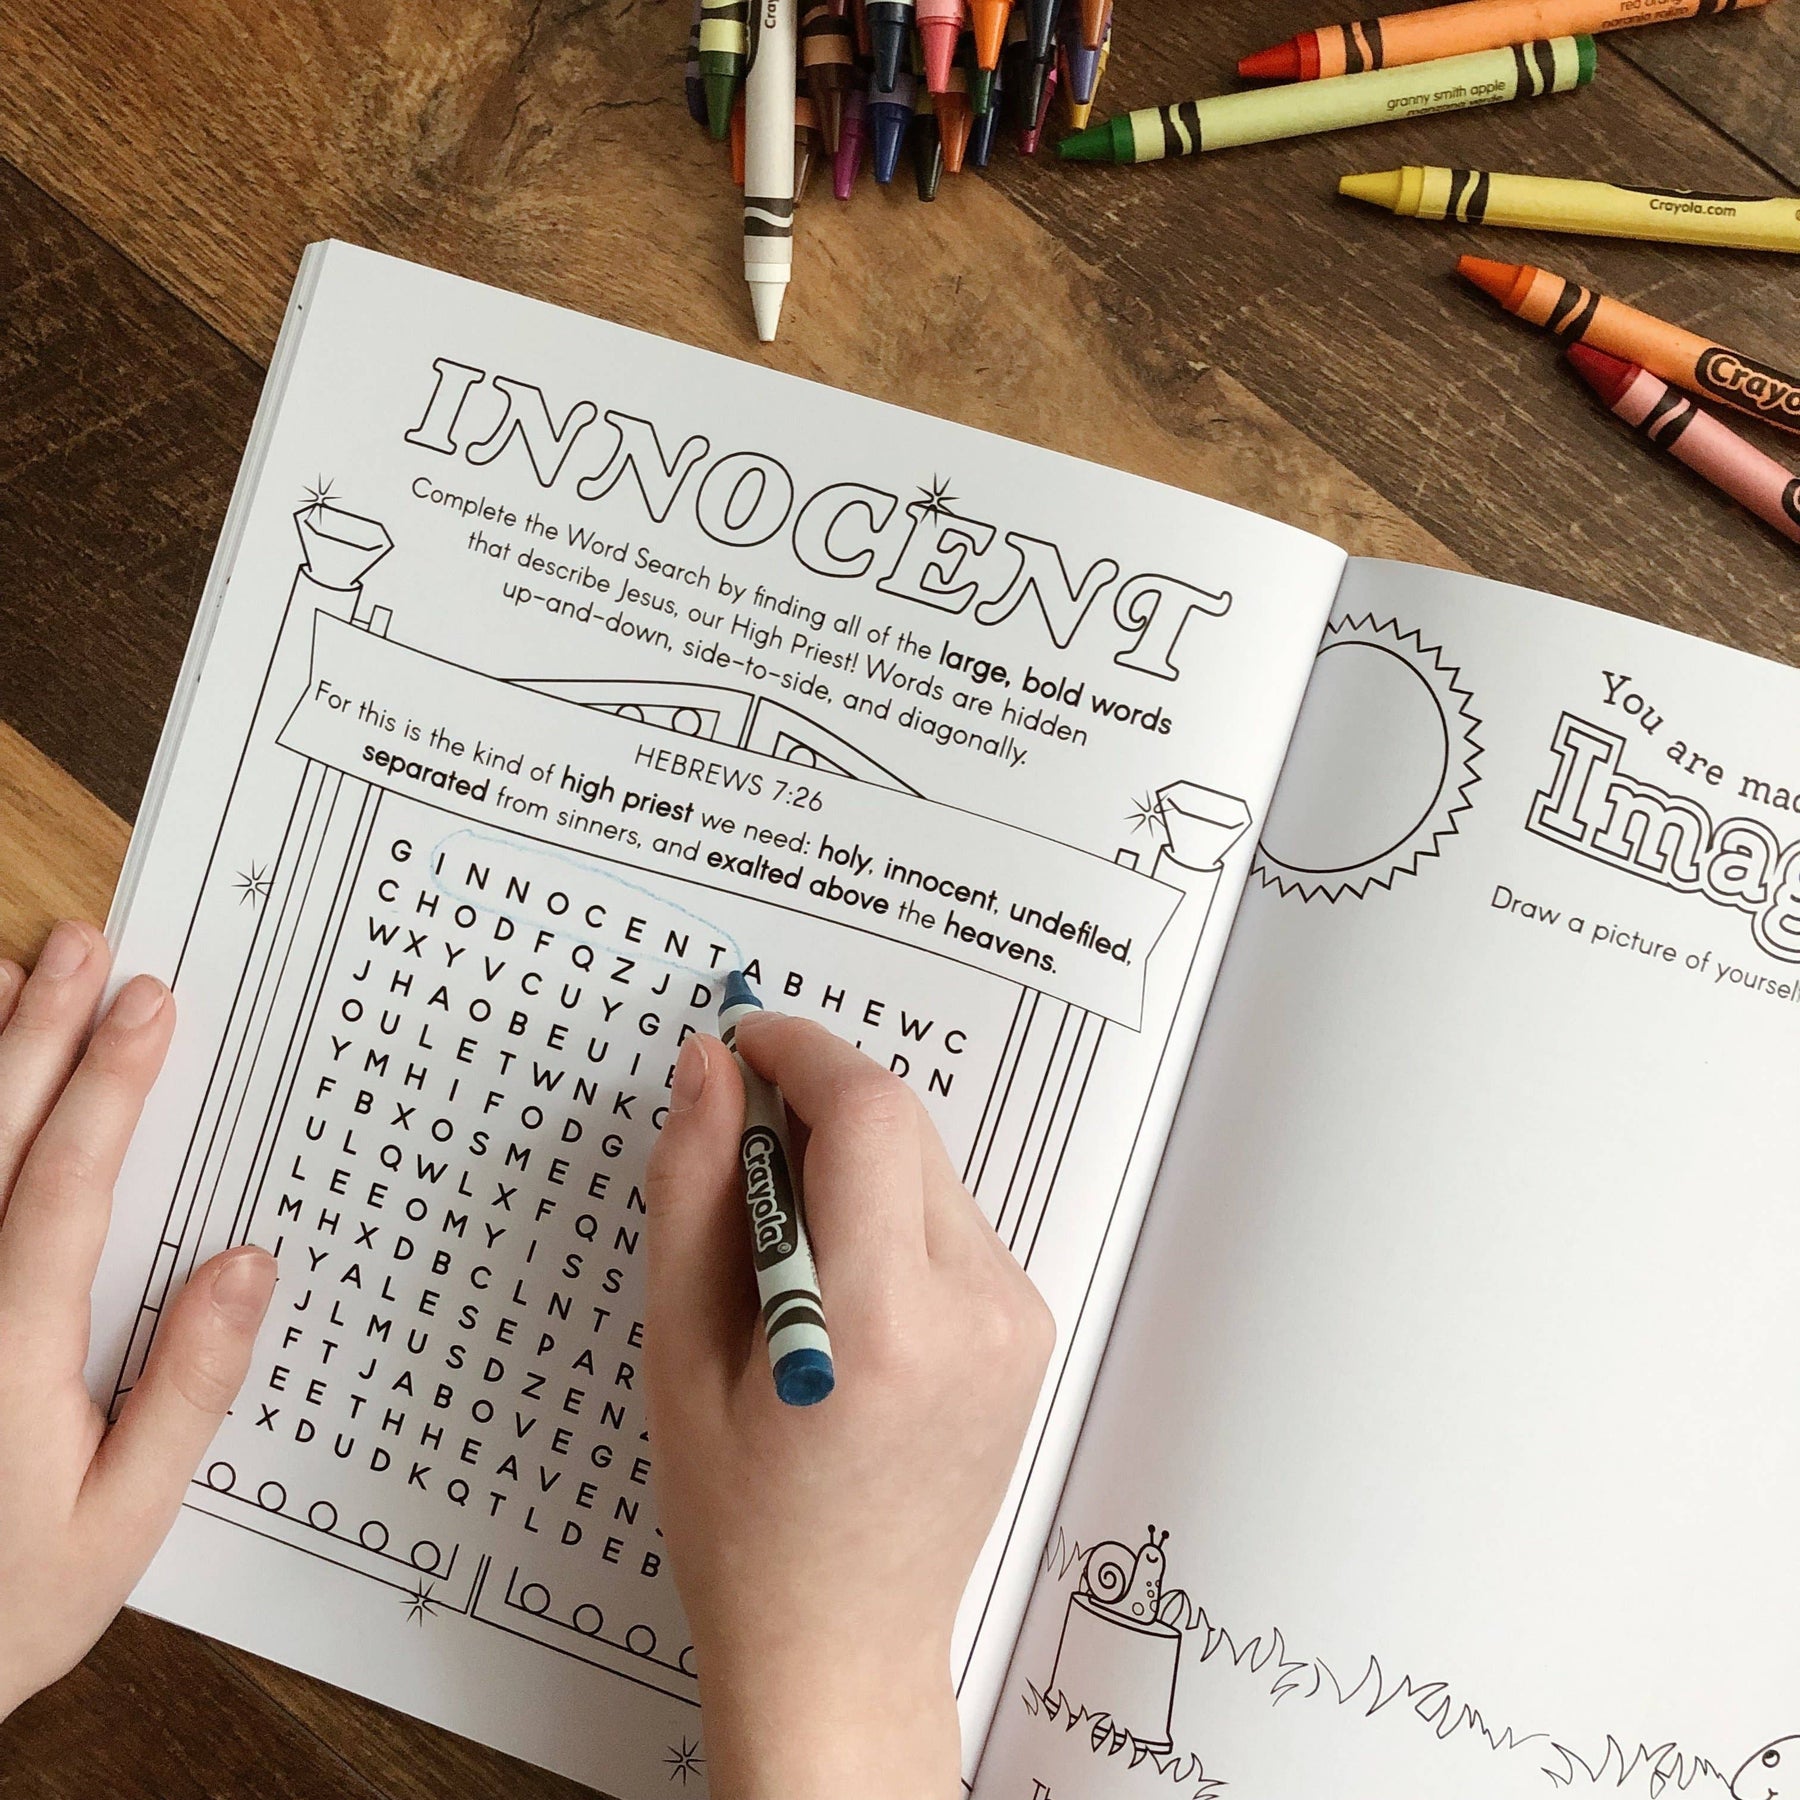 Crayola
red orange
naranja rojizo
granny smith apple
manzana verde
Crayola.com
Crayo
INNOCENT
Complete the Word Search by finding all of the large, bold words
that describe Jesus, our High Priest! Words are hidden
up-and-down, side-to-side, and diagonally.
HEBREWS 7:26
For this is the kind of high priest we need: holy, innocent, undefiled,
separated from sinners, and exalted above the heavens.
G I N N O C E N T A B H E W C
C H O D F Q Z J D L D N
W X Y V C U Y G
J H A O B E U I
O U L E T W N K
Y M H I F O D G
F B X O S M E E N
U L Q W L X F Q N
L E E O M Y I S S
M H X D B C L N T E
I Y A L E S E P A R
J L M U S D Z E N
F T J A B O V E G E
E E T H H E A V E N S
X D U D K Q T L D E B
Crayola
You are mad
Imag
Draw a picture of yoursel
Th